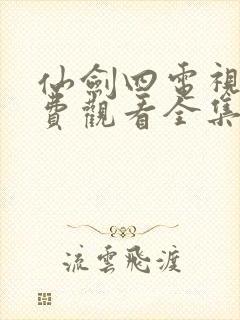 仙劍四電視
費觀看全集
流雲飛渡